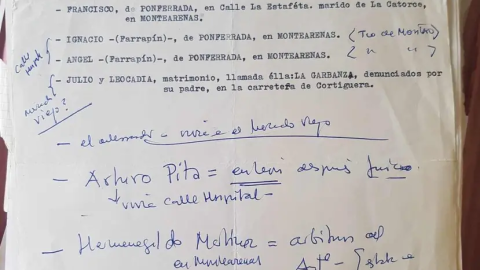 - FRANCISCO, de PONFERRADA, en Calle La Estaféta. marido de La Catorce,
en MONTEARENAS.
- IGNACIO -(Farrapín)-, de PONFERRADA, en MONTEARENAS. (Teo de Montero)
- ANGEL -(Farrapín)-, de PONFERRADA, en MONTEARENAS. ( " " )
Calle
- JULIO y LEOCADIA, matrimonio, llamada élla: LA GARBANZA, denunciados por
su padre, en la carretera de Cortiguera.
mercado
viejo?
- el - vivia en el Mercado Viejo
- Arturo Pita = después Juicio
↓ vivia calle Hospital -
- Hermenegildo = arbitrios del
en Montearenas